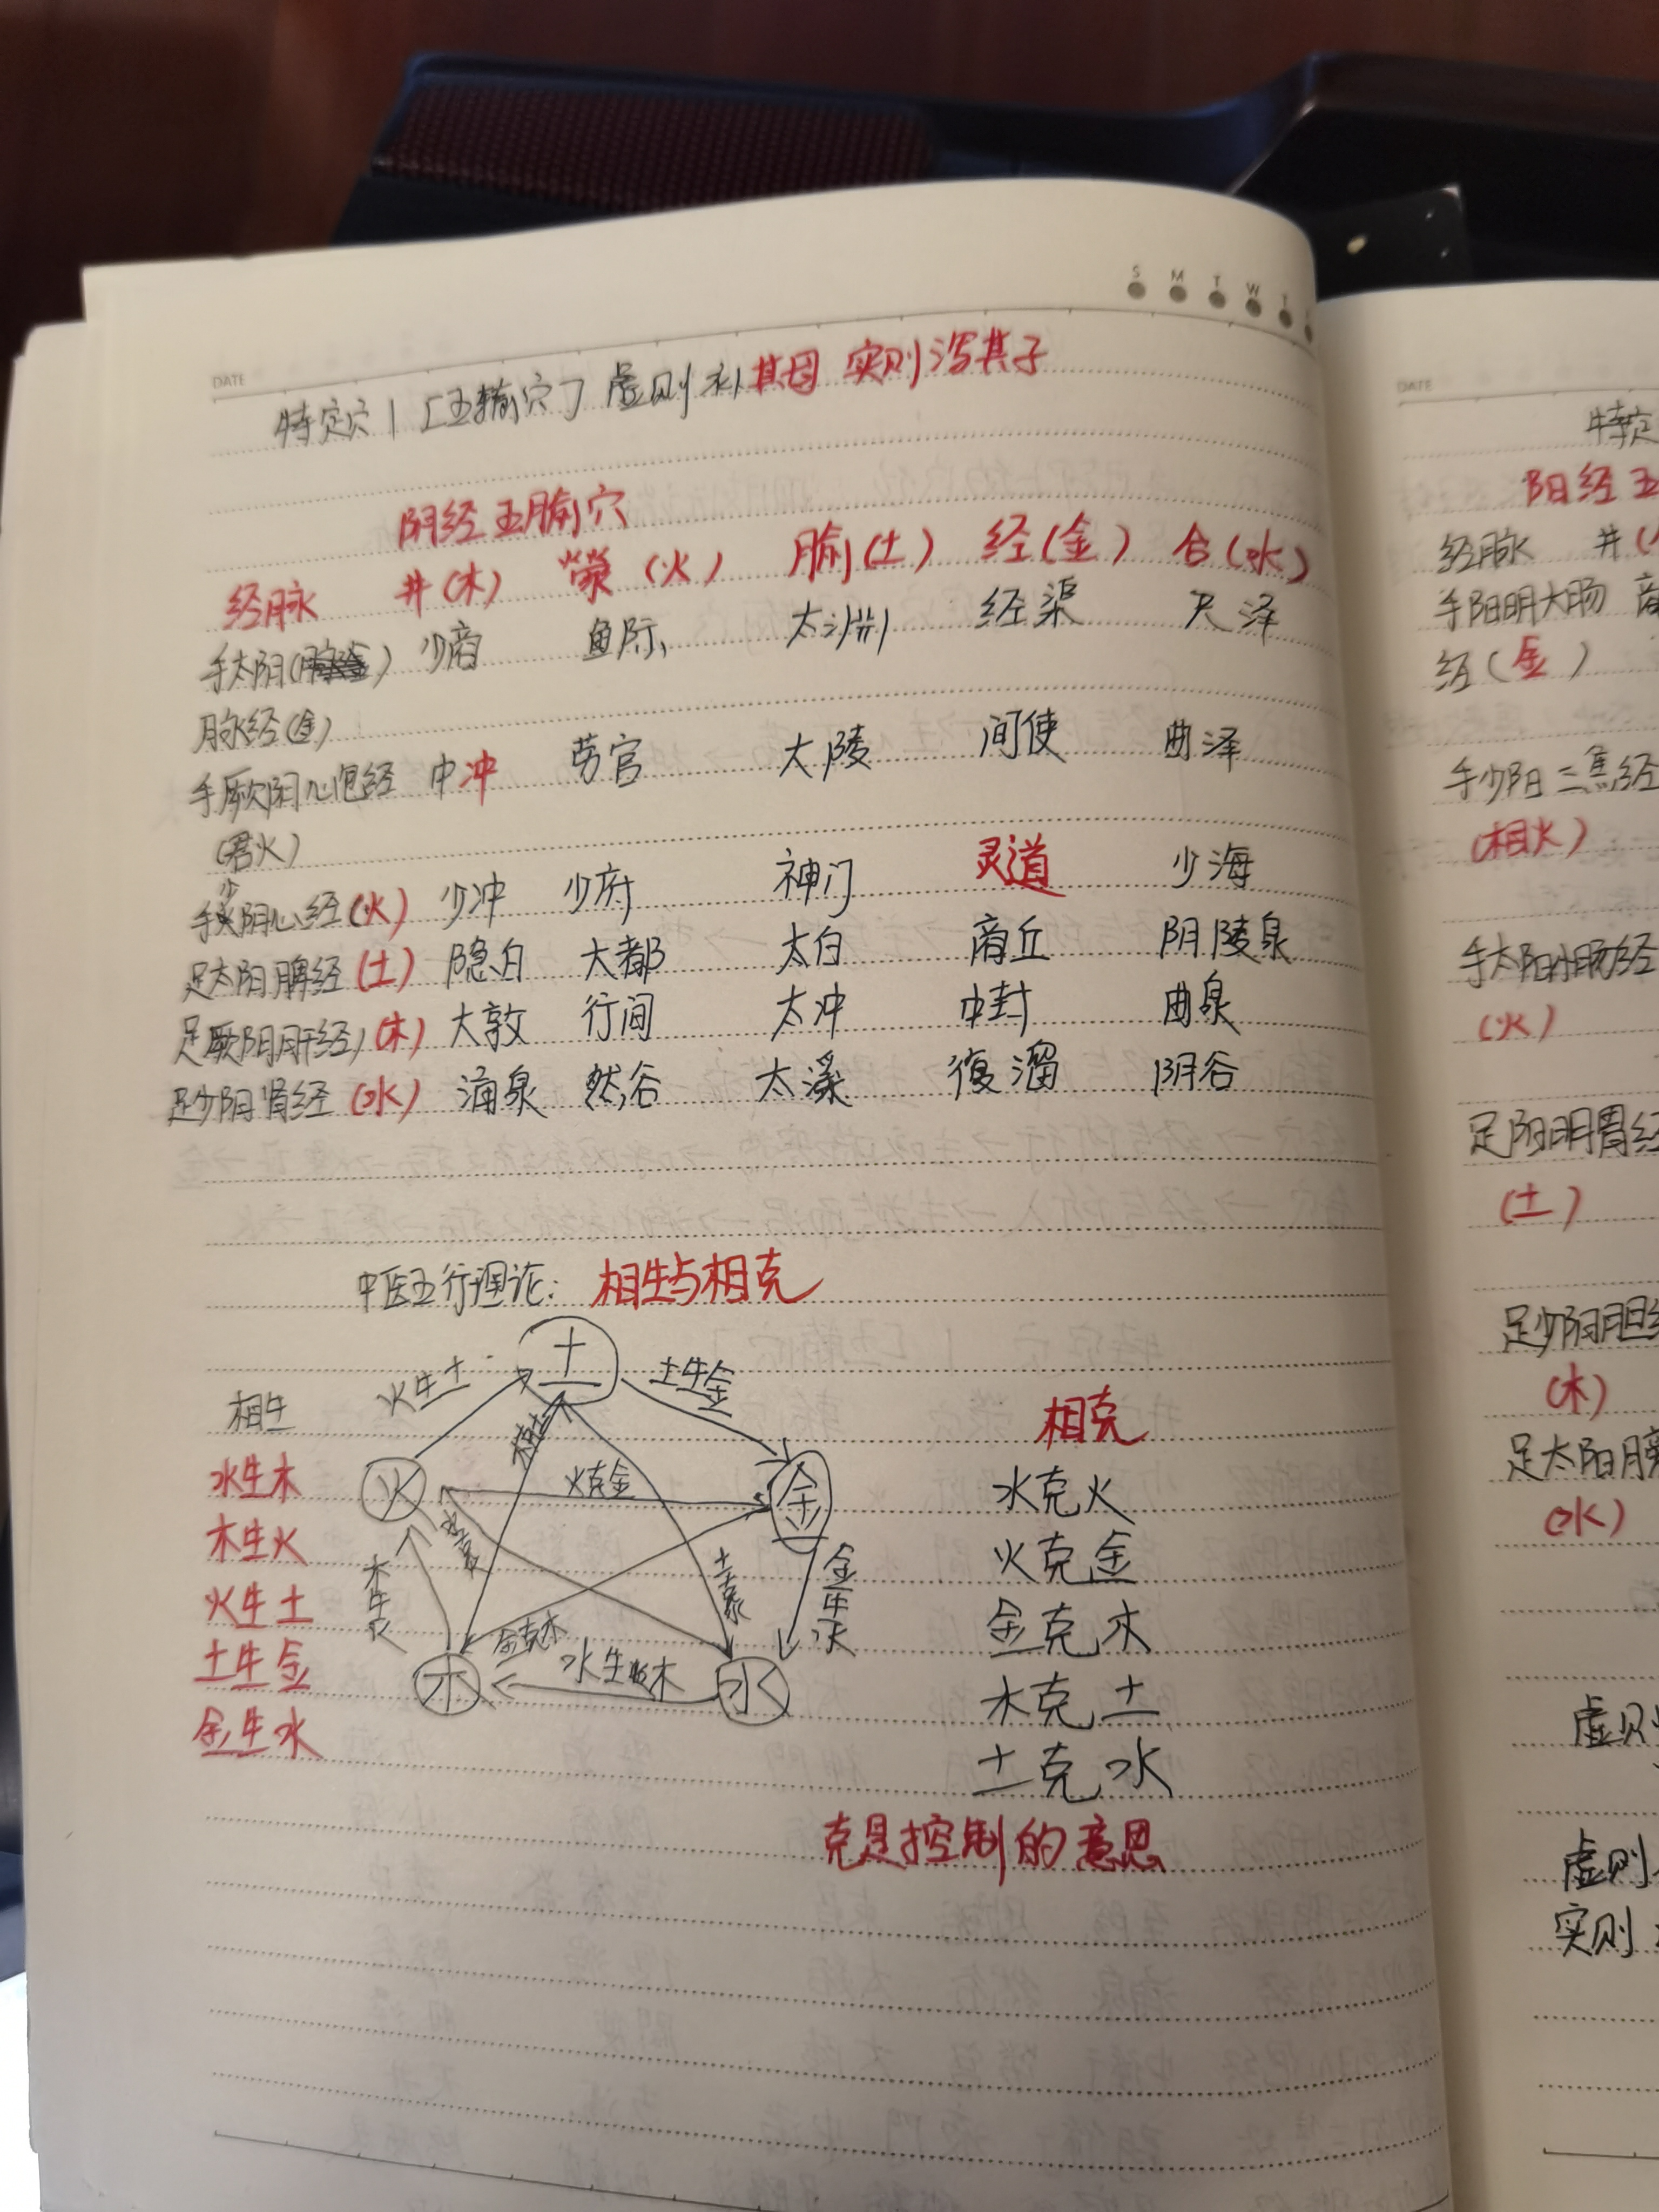 S M T W T
DATE
特定穴 | [五输穴] 虚则补其因 实则泻其子
阴经五腧穴
经脉 井(木) 荥(火) 腧(土) 经(金) 合(水)
手太阴( ) 少商 鱼际 太渊 经渠 尺泽
脉经(金)
手厥阴心包经 中冲 劳宫 大陵 间使 曲泽
(君火)
手少阴心经(火) 少冲 少府 神门 灵道 少海
足太阳脾经(土) 隐白 大都 太白 商丘 阴陵泉
足厥阴肝经(木) 大敦 行间 太冲 中封 曲泉
足少阴肾经(水) 涌泉 然谷 太溪 復溜 阴谷
中医五行理论: 相生与相克
土
火生土 土生金
相生
水生木
木生火
火生土
土生金
金生水
木克土
火 火克金 金
水克火 土克水
木生火 金生水
金克木
水生木
木 水
相克
水克火
火克金
金克木
木克土
土克水
克是控制的意思
DATE
特定
阳经五
经脉 井(
手阳明大肠 商
经(金)
手少阳三焦经
(相火)
手太阳小肠经
(火)
足阳明胃经
(土)
足少阳胆经
(木)
足太阳膀
(水)
虚则
虚则
实则